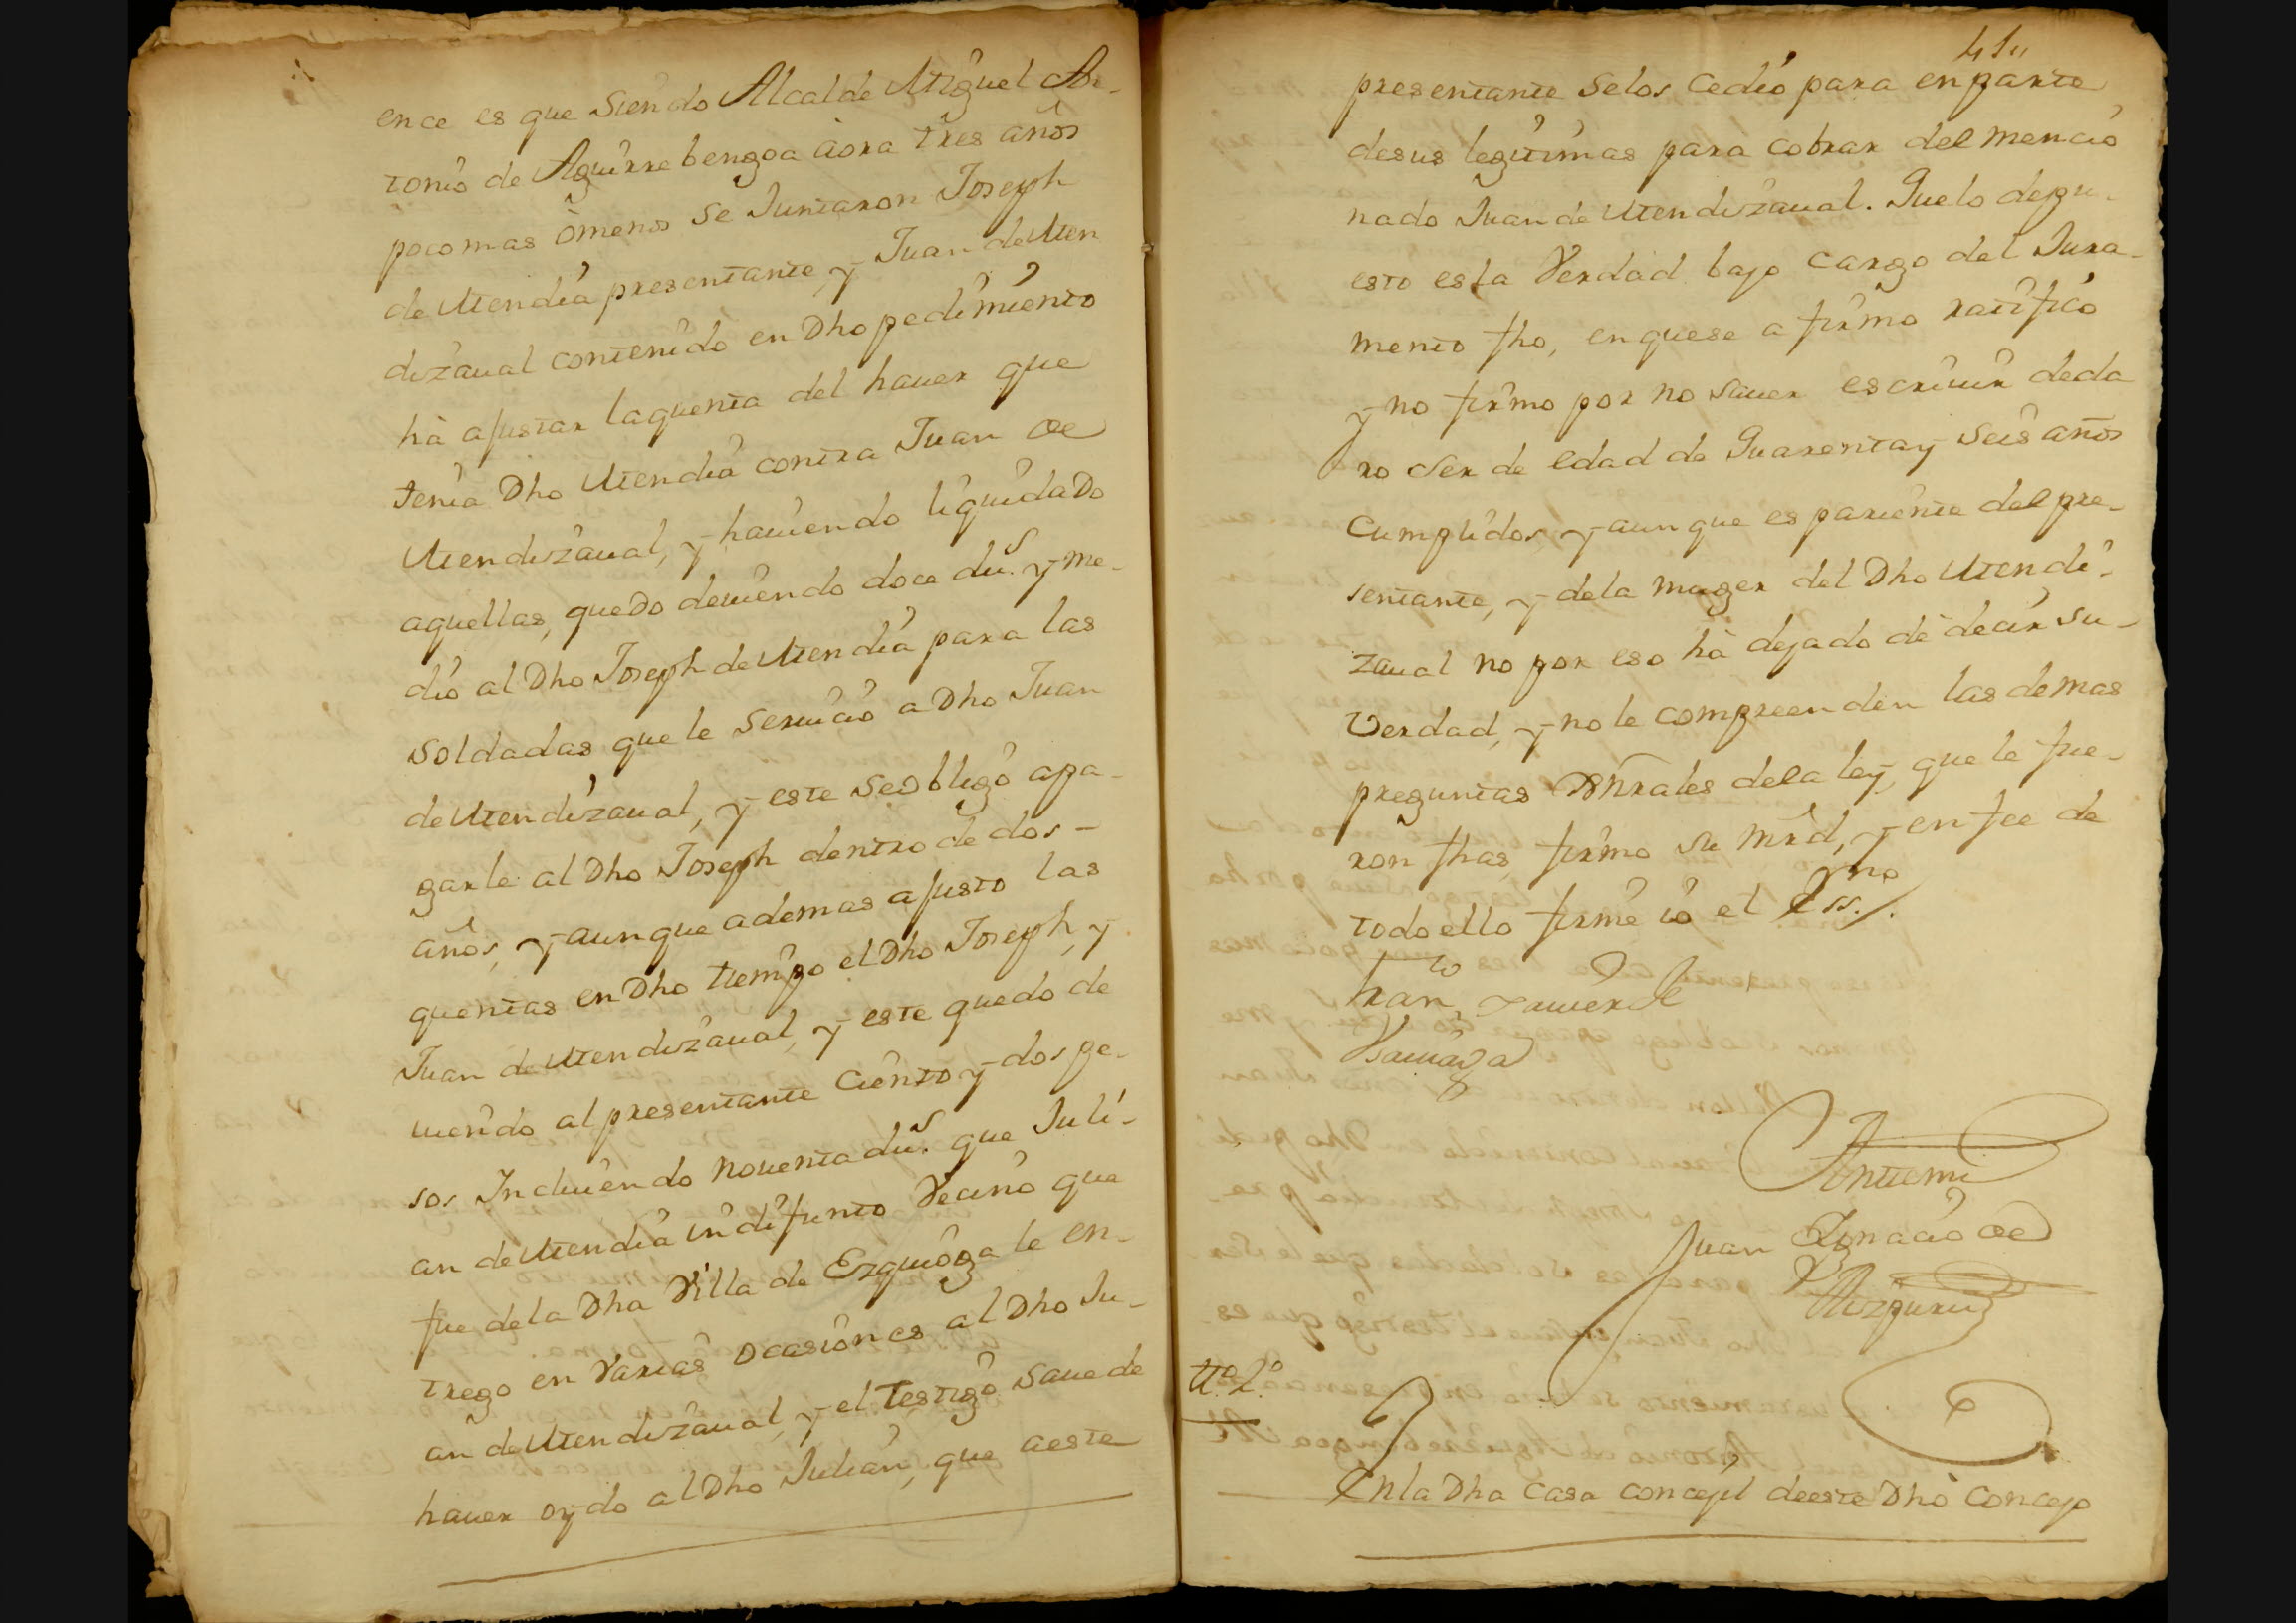 ence es que siendo Alcalde Miguel An-
tonio de Aguirrebengoa àora tres años
poco mas òmenos se Juntaron Joseph
de Mendia presentante, y Juan de Men
dizaual contenido en Dho pedimiento
hà ajustar laquenta del hauer que
tenia Dho Mendia contra Juan de
Mendizaual, y hauiendo liquidado
aquellas, quedo deuiendo doce du.s y me-
dio al Dho Joseph de Mendia para las
soldadas que le seruicio a Dho Juan
de Mendizaual, y este se obligò apa-
garle al Dho Joseph dentro de dos-
años, y aunque ademas ajusto las
quentas en Dho tiempo el Dho Joseph, y
Juan de Mendizaual, y este quedo de
uiendo al presentante Ciento y dos pe-
sos Incluiendo nouenta du.s que Juli-
an de Mendia indifunto Vecino que
fue dela Dha Villa de Ezquioga le en-
trego en Varias ocasiones al Dho Ju-
an de Mendizaual, y el testigo saue de
hauer oydo al Dho Julian, que aeste
41,,
presentante selos Cedio para en parte
desus legitimas para cobrar del mencio
nado Juan de Mendizaual. Quelo depu-
esto es la Verdad bajo cargo del Jura-
mento fho, en quese a firmo ratifico
y no firmo por no sauer escriuir decla
ro ser de edad de Quarenta y seis años
Cumplidos, y aun que es pariente del pre-
sentante, y dela muger del Dho Mendi-
zaual no por eso hà dejado de decir su-
Verdad, y no le compreenden las demas
preguntas Gñrales dela ley, que le fue-
ron fhas, firmo su mrd, y en fee de
todo ello firmè io el Ess.no
Fran.co Xauier de
Antemi
Juan Ignacio de
Aizpuru
tt.o 2.o
Enla Dha Casa concejil deeste Dho Concejo